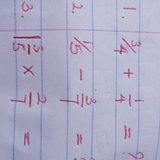 1. 3/4 + 1/4 = ?
2. 1/5 - 3/7 =
3. 1 3/5 × 2/7 =